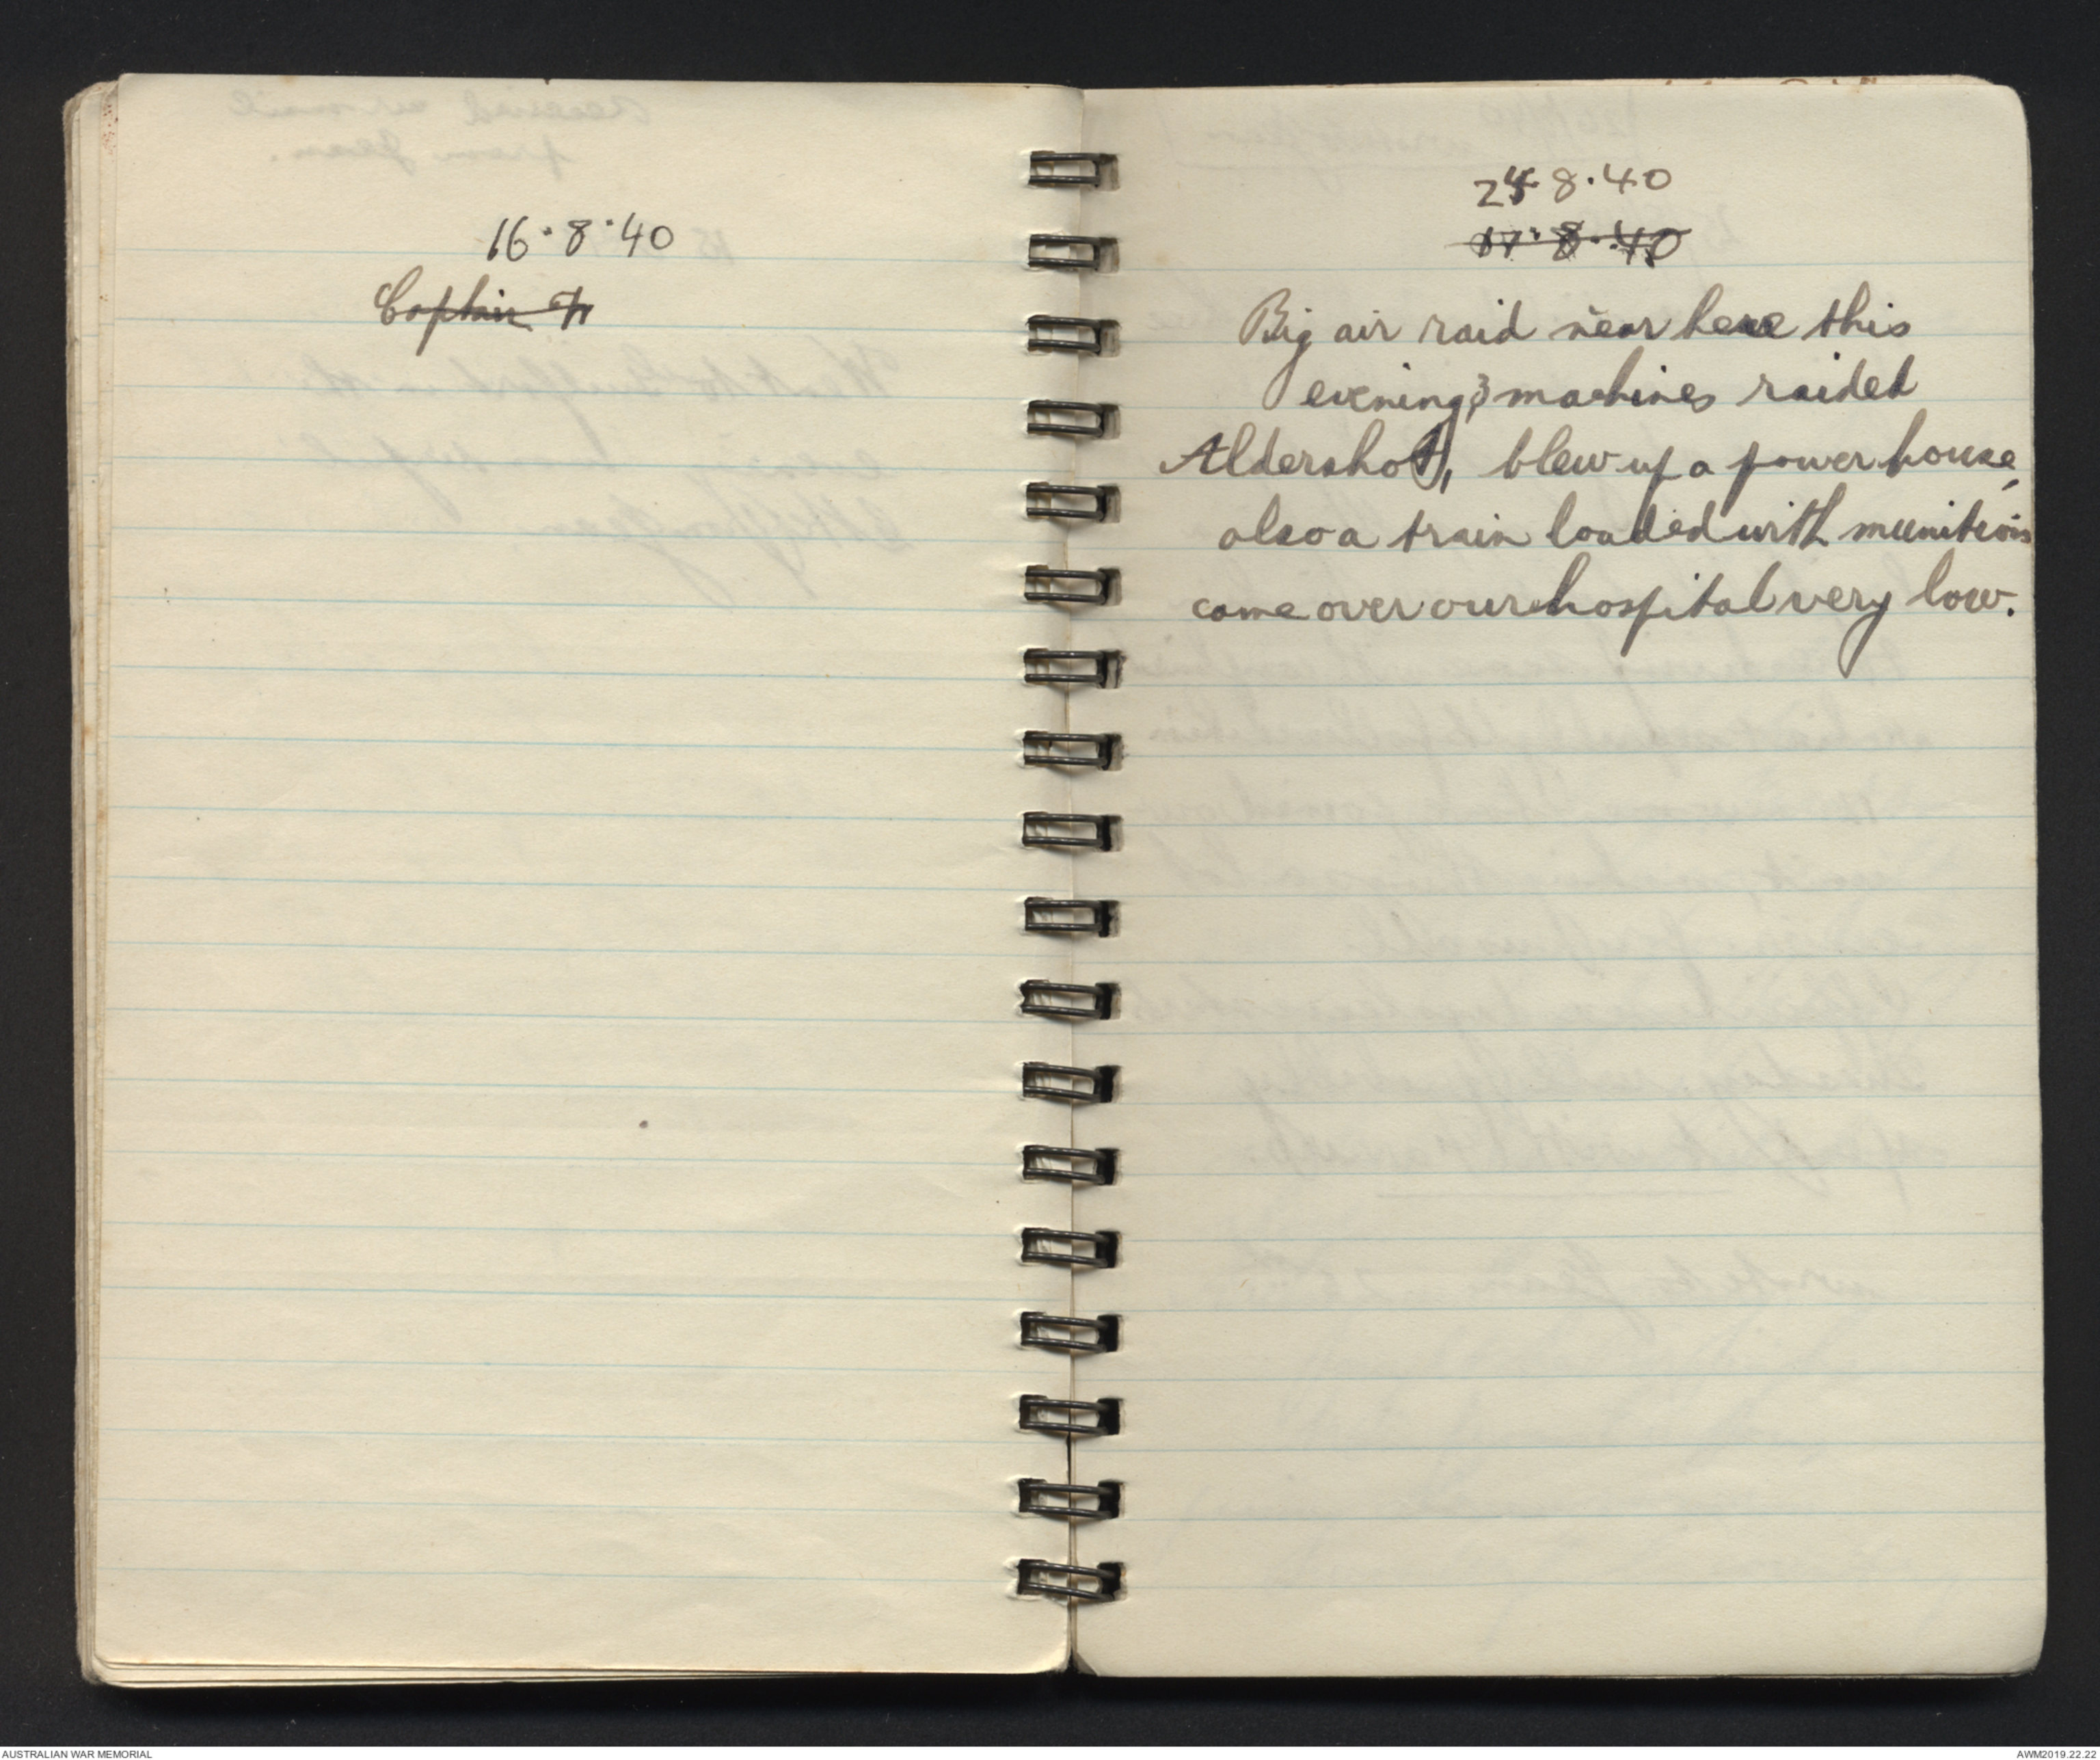 16.8.40
Captain
24.8.40
17.8.40
Big air raid near here this
evening, 3 machines raided
Aldershot, blew up a power house,
also a train loaded with munitions
came over our hospital very low.
AUSTRALIAN WAR MEMORIAL
AWM2019.22.22